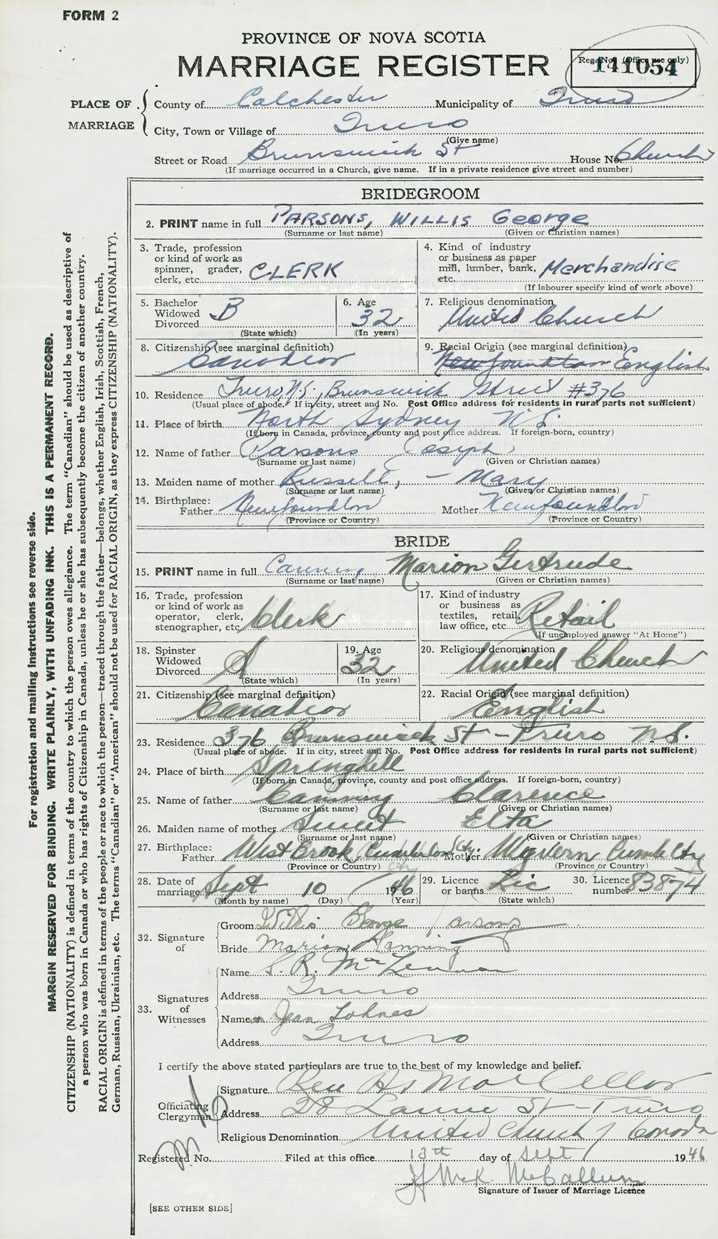 FORM 2
PROVINCE OF NOVA SCOTIA
MARRIAGE REGISTER
Reg. No. (Office use only)
141054
PLACE OF MARRIAGE
County of Colchester Municipality of Truro
City, Town or Village of Truro
(Give name)
Street or Road Brunswick St House No. Church
(If marriage occurred in a Church, give name. If in a private residence give street and number)
BRIDEGROOM
2. PRINT name in full PARSONS, WILLIS George
(Surname or last name) (Given or Christian names)
3. Trade, profession or kind of work as spinner, grader, clerk, etc. CLERK
4. Kind of industry or business as paper mill, lumber, bank, etc. Merchandise
(If labourer specify kind of work above)
5. Bachelor Widowed Divorced B
(State which)
6. Age 32
(In years)
7. Religious denomination United Church
8. Citizenship (see marginal definition) Canadian
9. Racial Origin (see marginal definition) English
10. Residence Truro, N.S., Brunswick Street #376
(Usual place of abode. If in city, street and No. Post Office address for residents in rural parts not sufficient)
11. Place of birth North Sydney N.S.
(If born in Canada, province, county and post office address. If foreign-born, country)
12. Name of father Parsons Joseph
(Surname or last name) (Given or Christian names)
13. Maiden name of mother Russell, - Mary
(Surname or last name) (Given or Christian names)
14. Birthplace: Father Newfoundland Mother Newfoundland
(Province or Country) (Province or Country)
BRIDE
15. PRINT name in full Canning Marion Gertrude
(Surname or last name) (Given or Christian names)
16. Trade, profession or kind of work as operator, clerk, stenographer, etc. Clerk
17. Kind of industry or business as textiles, retail, law office, etc. Retail
(If unemployed answer "At Home")
18. Spinster Widowed Divorced S
(State which)
19. Age 32
(In years)
20. Religious denomination United Church
21. Citizenship (see marginal definition) Canadian
22. Racial Origin (see marginal definition) English
23. Residence 376 Brunswick St - Truro N.S.
(Usual place of abode. If in city, street and No. Post Office address for residents in rural parts not sufficient)
24. Place of birth Springhill
(If born in Canada, province, county and post office address. If foreign-born, country)
25. Name of father Canning Clarence
(Surname or last name) (Given or Christian names)
26. Maiden name of mother Etta
(Surname or last name) (Given or Christian names)
27. Birthplace: Father West Brook, Cumberland Cty. Mother
(Province or Country) (Province or Country)
28. Date of marriage Sept 10 /46
(Month by name) (Day) (Year)
29. Licence or banns Lic
(State which)
30. Licence number 83874
32. Signature of
Groom Willis George Parsons
Bride Marion Canning
33. Signatures of Witnesses
Name
Address Truro
Name Jean Lohnes
Address Truro
I certify the above stated particulars are true to the best of my knowledge and belief.
Officiating Clergyman
Signature Rev
Address 28 St - Truro
Religious Denomination United Church of Canada
Registered No. Filed at this office 13th day of Sept 1946
Signature of Issuer of Marriage Licence
[SEE OTHER SIDE]
For registration and mailing instructions see reverse side.
MARGIN RESERVED FOR BINDING. WRITE PLAINLY, WITH UNFADING INK. THIS IS A PERMANENT RECORD.
CITIZENSHIP (NATIONALITY) is defined in terms of the country to which the person owes allegiance. The term "Canadian" should be used as descriptive of
a person who was born in Canada or who has rights of Citizenship in Canada, unless he or she has subsequently become the citizen of another country.
RACIAL ORIGIN is defined in terms of the people or race to which the person—traced through the father—belongs, whether English, Irish, Scottish, French,
German, Russian, Ukrainian, etc. The terms "Canadian" or "American" should not be used for RACIAL ORIGIN, as they express CITIZENSHIP (NATIONALITY).